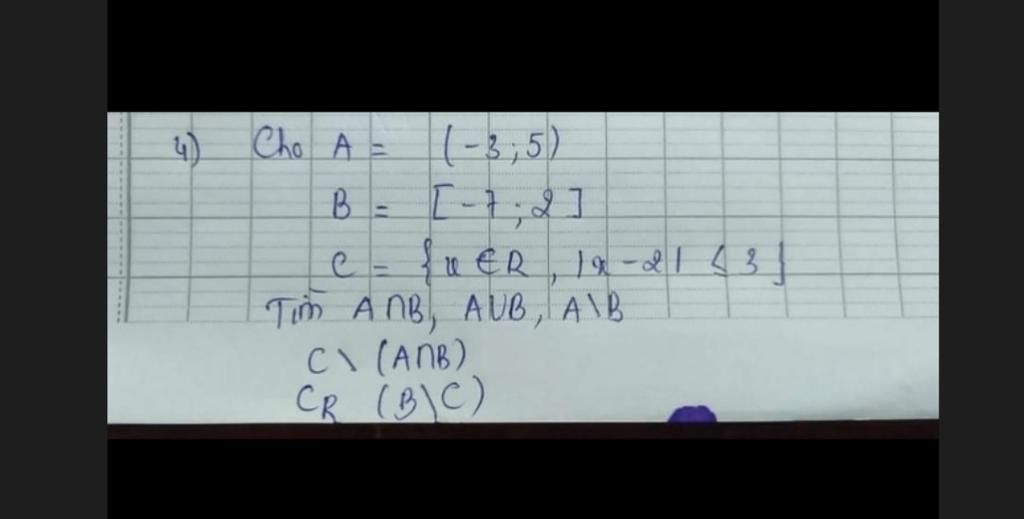 4) Cho A = (-3 ; 5)
B = [-7 ; 2]
C = {x ∈ R , |x - 2| < 3}
Tìm A∩B, A∪B, A\B
C \ (A∩B)
C_R (B\C)